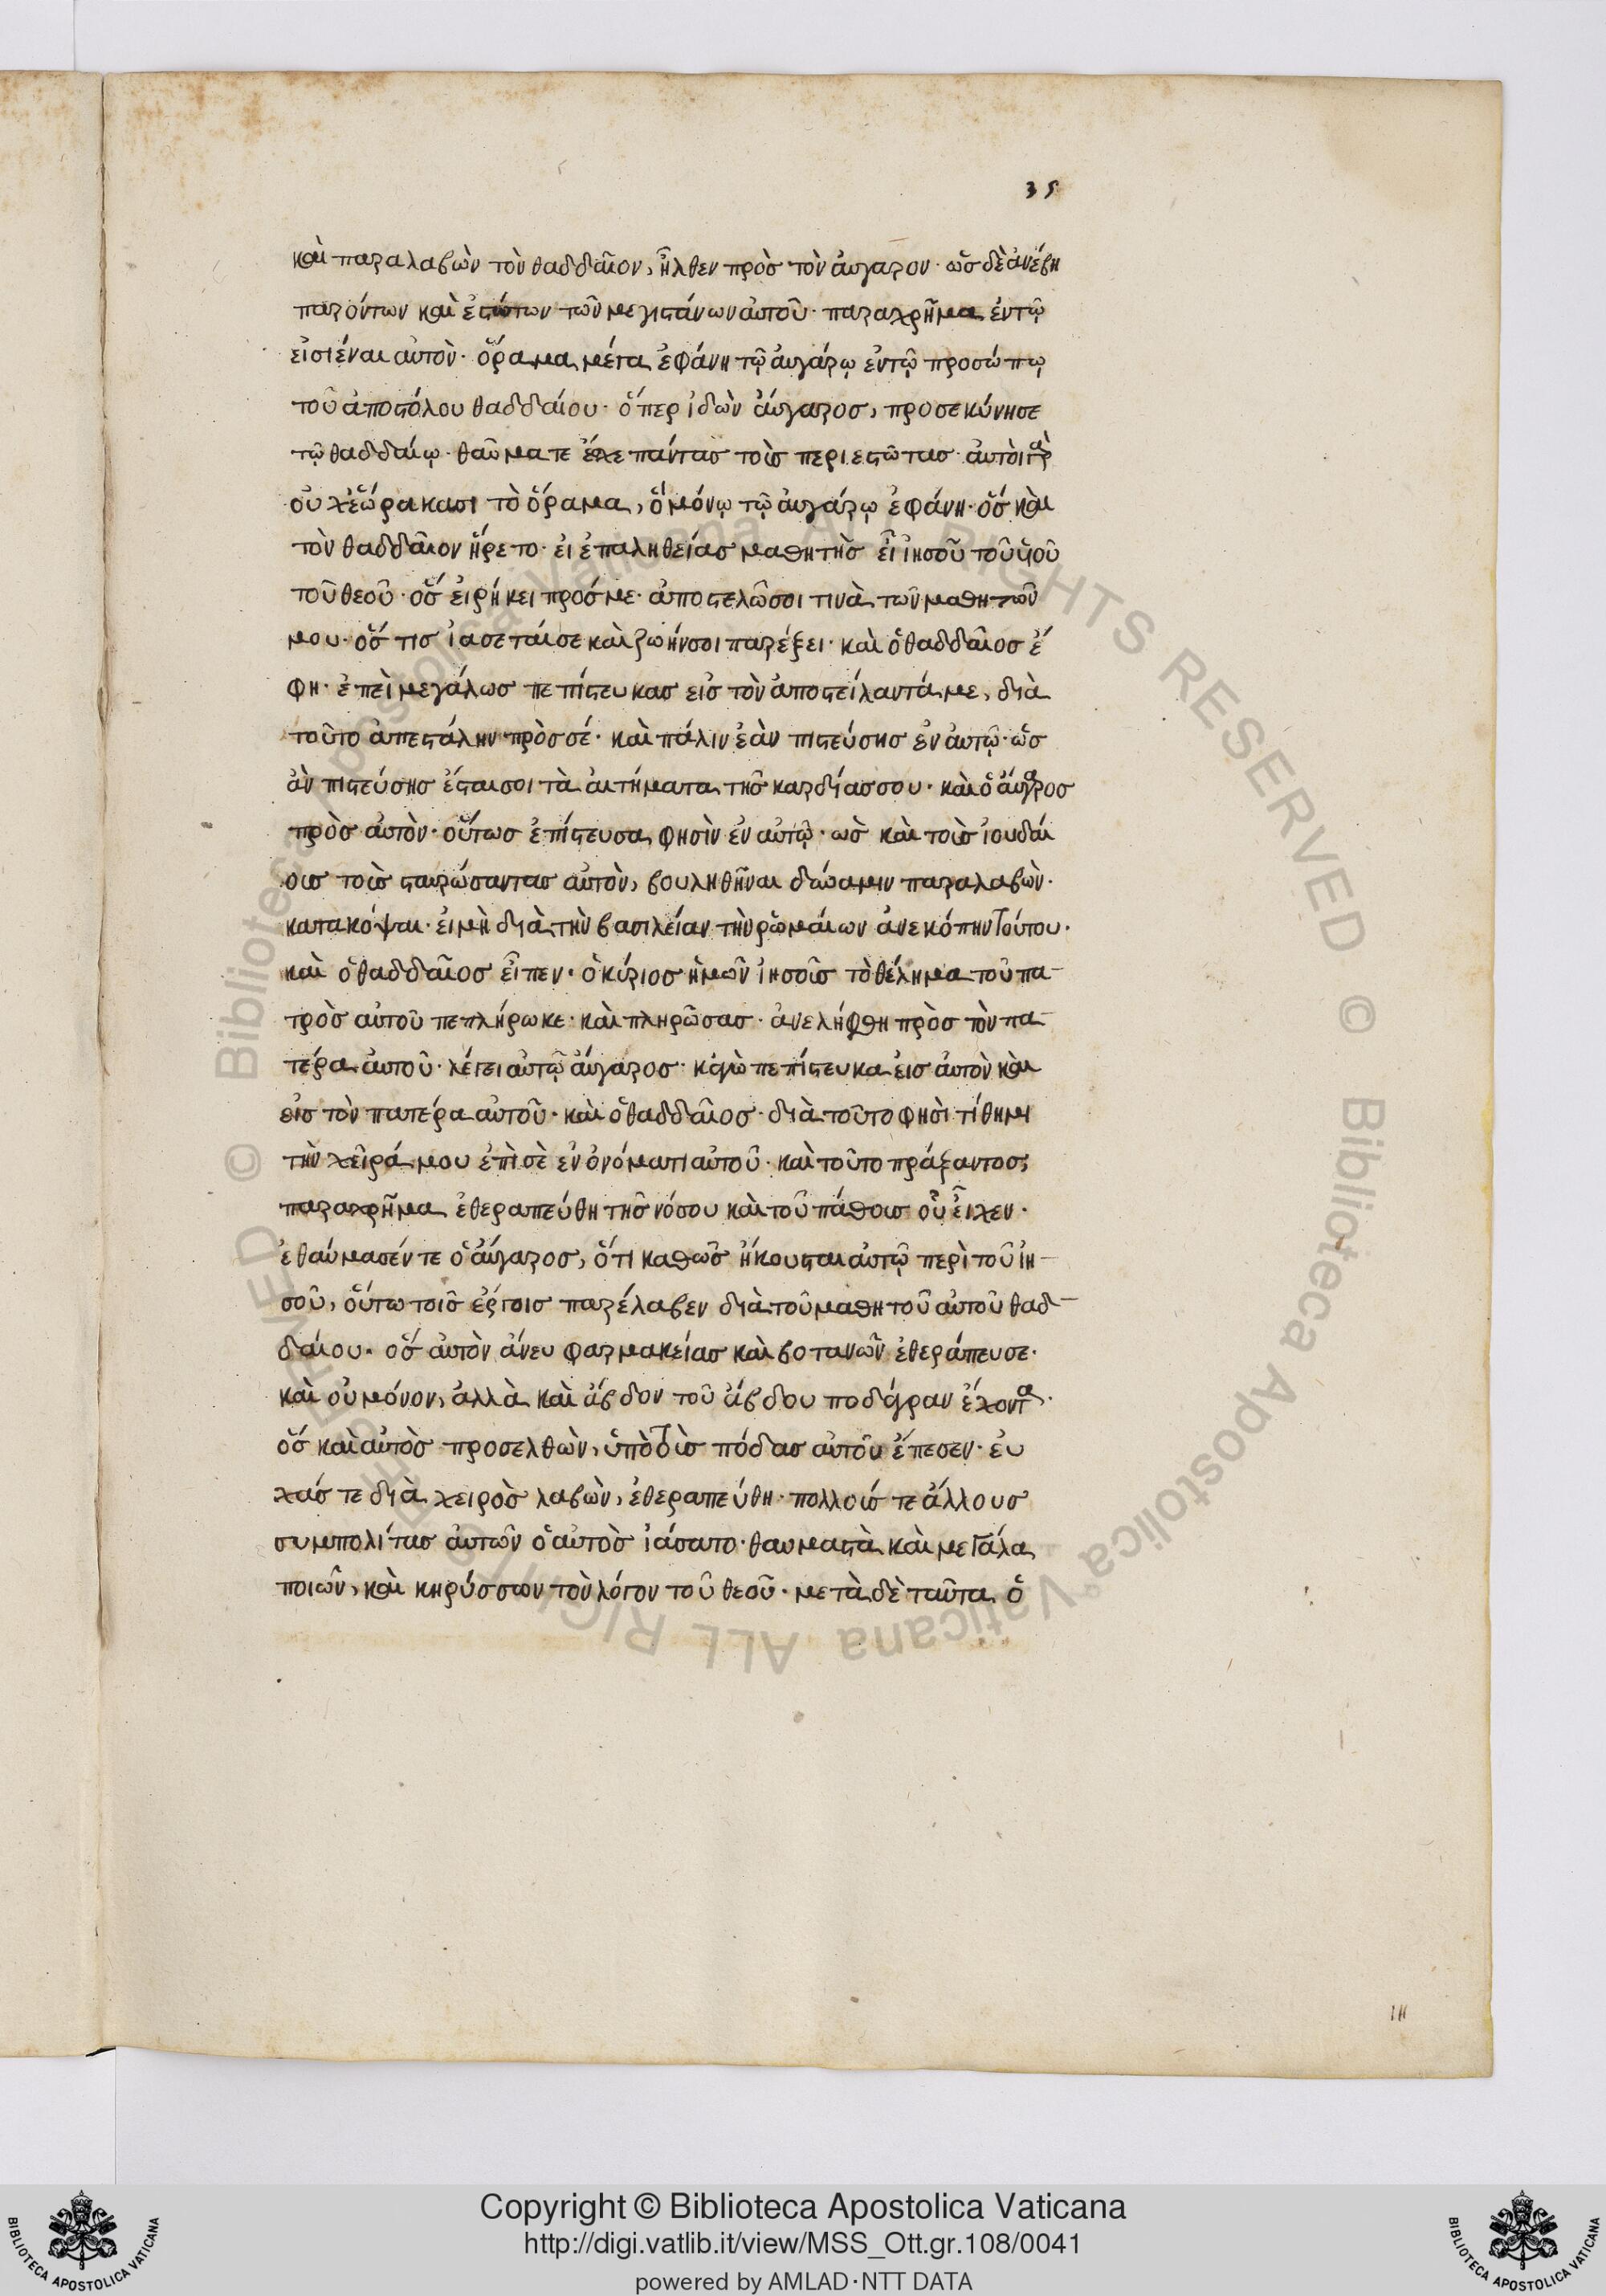 35
καὶ παραλαβὼν τὸν θαδδαῖον, ἦλθεν πρὸσ τὸν αὔγαρον· ὡσ δὲ ἀνέβη
παρόντων καὶ ἑστώτων τῶν μεγιστάνων αὐτοῦ· παραχρῆμα ἐν τῷ
εἰσιέναι αὐτὸν· ὅραμα μέγα ἐφάνη τῷ αὐγάρῳ ἐν τῷ προσώπῳ
τοῦ ἀποστόλου θαδδαίου· ὅπερ ἰδὼν αὔγαροσ, προσεκύνησε
τῷ θαδδαίῳ· θαῦμα τε ἔσχε πάντασ τοὺσ περιεστῶτασ· αὐτοὶ γὰρ
οὐχ ἑώρακασι τὸ ὅραμα, ὃ μόνῳ τῷ αὐγάρῳ ἐφάνη· ὃσ καὶ
τὸν θαδδαῖον ἤρετο· εἰ ἐπαληθείασ μαθητὴσ εἶ ἰησοῦ τοῦ υἱοῦ
τοῦ θεοῦ· ὃσ εἰρήκει πρόσ με· ἀποστελῶ σοι τινὰ τῶν μαθητῶν
μου· ὅσ τισ ἰάσεταί σε καὶ ζωήν σοι παρέξει· καὶ ὁ θαδδαῖοσ ἔ
φη· ἐπεὶ μεγάλωσ πεπίστευκασ εἰσ τὸν ἀποστείλαντά με, διὰ
τοῦτο ἀπεστάλην πρὸσ σέ· καὶ πάλιν ἐὰν πιστεύσησ ἐν αὐτῷ· ὡσ
ἂν πιστεύσησ ἔσται σοι τὰ αἰτήματα τῆσ καρδίασ σου· καὶ ὁ αὔγαροσ
πρὸσ αὐτὸν· οὕτωσ ἐπίστευσα φησὶν ἐν αὐτῷ· ὡσ καὶ τοὺσ ἰουδαί
ουσ τοὺσ σταυρώσαντασ αὐτὸν, βουληθῆναι δύναμιν παραλαβὼν·
κατακόψαι· εἰ μὴ διὰ τὴν βασιλείαν τὴν ῥωμαίων ἀνεκόπην τούτου·
καὶ ὁ θαδδαῖοσ εἶπεν· ὁ κύριοσ ἡμῶν ἰησοῦσ τὸ θέλημα τοῦ πα-
τρὸσ αὐτοῦ πεπλήρωκε· καὶ πληρῶσασ· ἀνελήφθη πρὸσ τὸν πα-
τέρα αὐτοῦ· λέγει αὐτῷ αὔγαροσ· κἀγὼ πεπίστευκα εἰσ αὐτὸν καὶ
εἰσ τὸν πατέρα αὐτοῦ· καὶ ὁ θαδδαῖοσ· διὰ τοῦτο φησὶ τίθημι
τὴν χεῖρά μου ἐπὶ σὲ ἐν ὀνόματι αὐτοῦ· καὶ τοῦτο πράξαντοσ,
παραχρῆμα ἐθεραπεύθη τῆσ νόσου καὶ τοῦ πάθουσ οὗ εἶχεν·
ἐθαύμασέν τε ὁ αὔγαροσ, ὅτι καθὼσ ἤκουσται αὐτῷ περὶ τοῦ ἰη-
σοῦ, οὕτω τοῖσ ἔργοισ παρέλαβεν διὰ τοῦ μαθητοῦ αὐτοῦ θαδ-
δαίου· ὃσ αὐτὸν ἄνευ φαρμακείασ καὶ βοτανῶν ἐθεράπευσε·
καὶ οὐ μόνον, ἀλλὰ καὶ ἄβδον τοῦ ἄβδου ποδάγραν ἔχοντα·
ὃσ καὶ αὐτὸσ προσελθὼν, ὑπὸ τοὺσ πόδασ αὐτοῦ ἔπεσεν· εὐ
χάσ τε διὰ χειρὸσ λαβὼν, ἐθεραπεύθη· πολλούσ τε ἄλλουσ
συμπολίτασ αὐτῶν ὁ αὐτὸσ ἰάσατο· θαυμαστὰ καὶ μεγάλα
ποιῶν, καὶ κηρύσσων τὸν λόγον τοῦ θεοῦ· μετὰ δὲ ταῦτα ὁ
Copyright © Biblioteca Apostolica Vaticana
http://digi.vatlib.it/view/MSS_Ott.gr.108/0041
powered by AMLAD·NTT DATA
BIBLIOTECA APOSTOLICA VATICANA
BIBLIOTECA APOSTOLICA VATICANA
© Biblioteca Apostolica Vaticana ALL RIGHTS RESERVED © Biblioteca Apostolica Vaticana ALL RIGHTS RESERVED